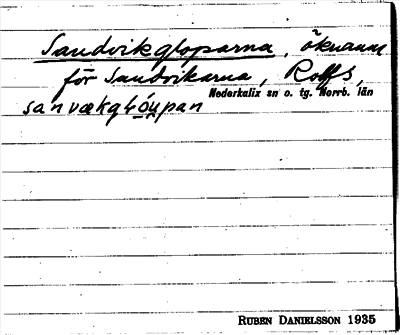 Sandvikgloparna, öknamn
för Sandvikarna, Rolfs,
Nederkalix sn o. tg. Norrb. län
RUBEN DANIELSSON 1935